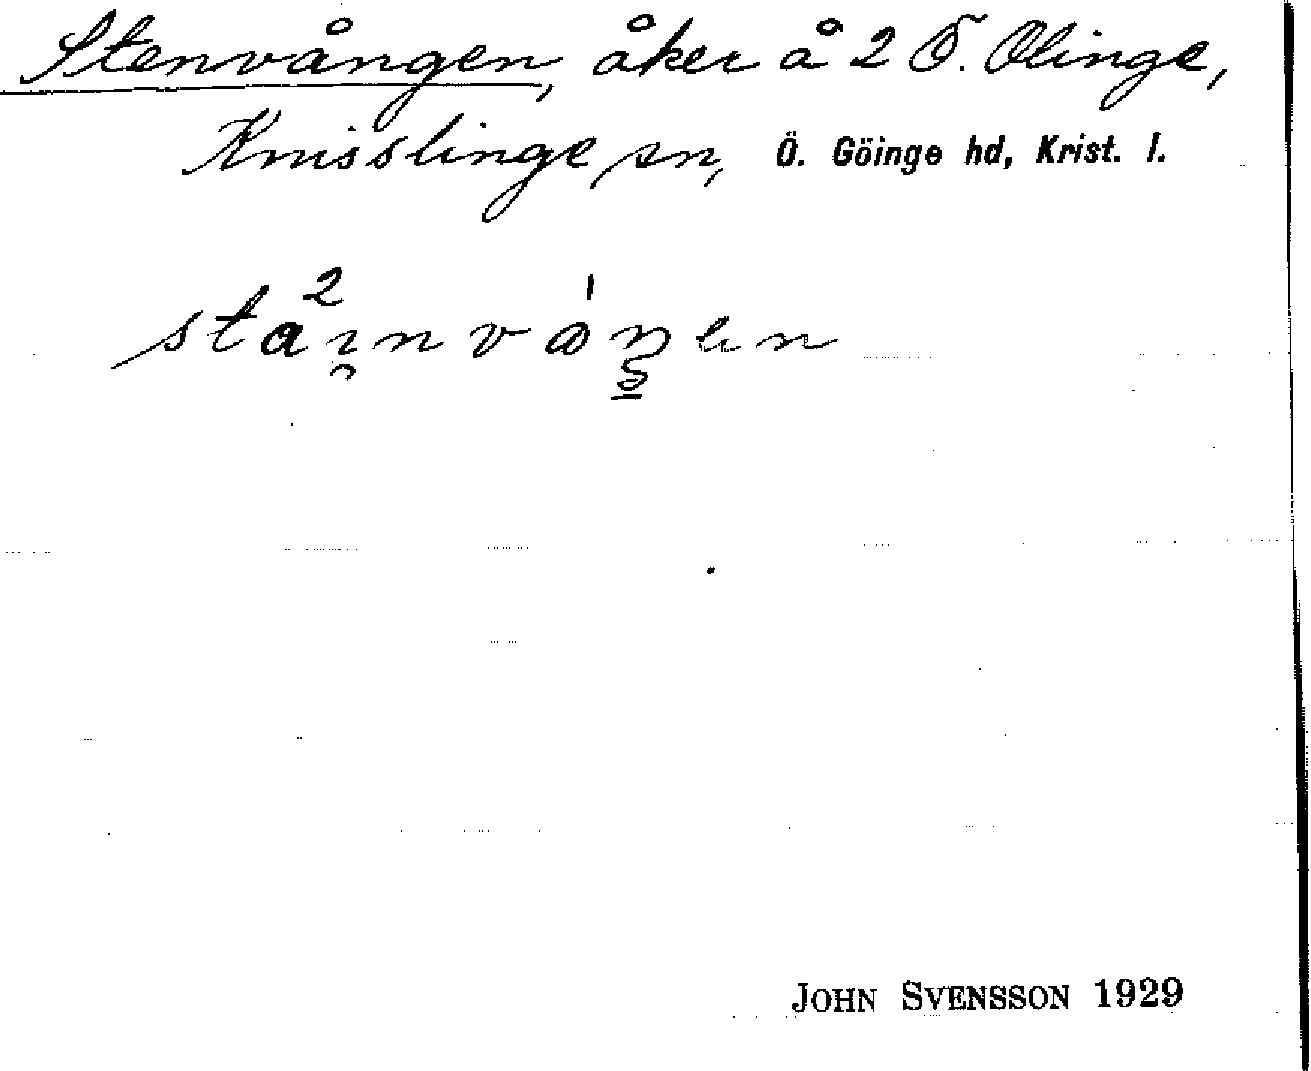 Stenvången, åker å 2 Ö. Olinge,
Knisslinge sn, Ö. Göinge hd, Krist. l.
JOHN SVENSSON 1929